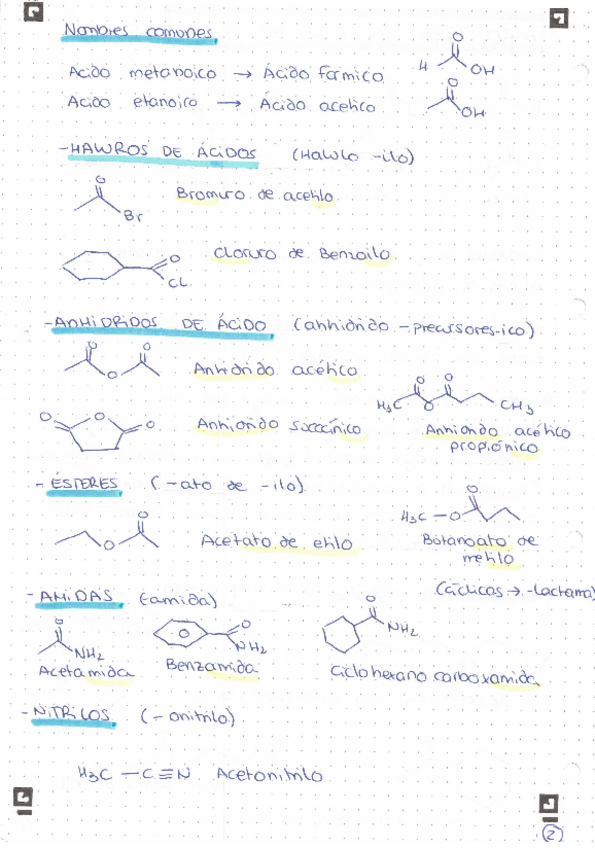 Nombres comunes
Acido metanoico → Ácido fórmico
H
O
OH
Acido etanoico → Ácido acetico
O
OH
-HALUROS DE ÁCIDOS (Haluro -ilo)
O
Br
Bromuro de acetilo
O
CL
Cloruro de Benzoilo
-ANHIDRIDOS DE ÁCIDO (anhidrido - precursores-ico)
O
O
O
Anhidrido acético
O
O
O
Anhidrido succínico
O
O
H3C
O
CH3
Anhidrido acético
propiónico
- ÉSTERES (-ato de -ilo)
O
O
Acetato de etilo
O
H3C - O
Botanoato de
metilo
- AMIDAS (-amida)
(Cíclicas → -lactama)
O
NH2
Acetamida
O
O
NH2
Benzamida
O
NH2
Ciclohexano carboxamida
-NITRILOS (-onitrilo)
H3C - C ≡ N Acetonitrilo
2